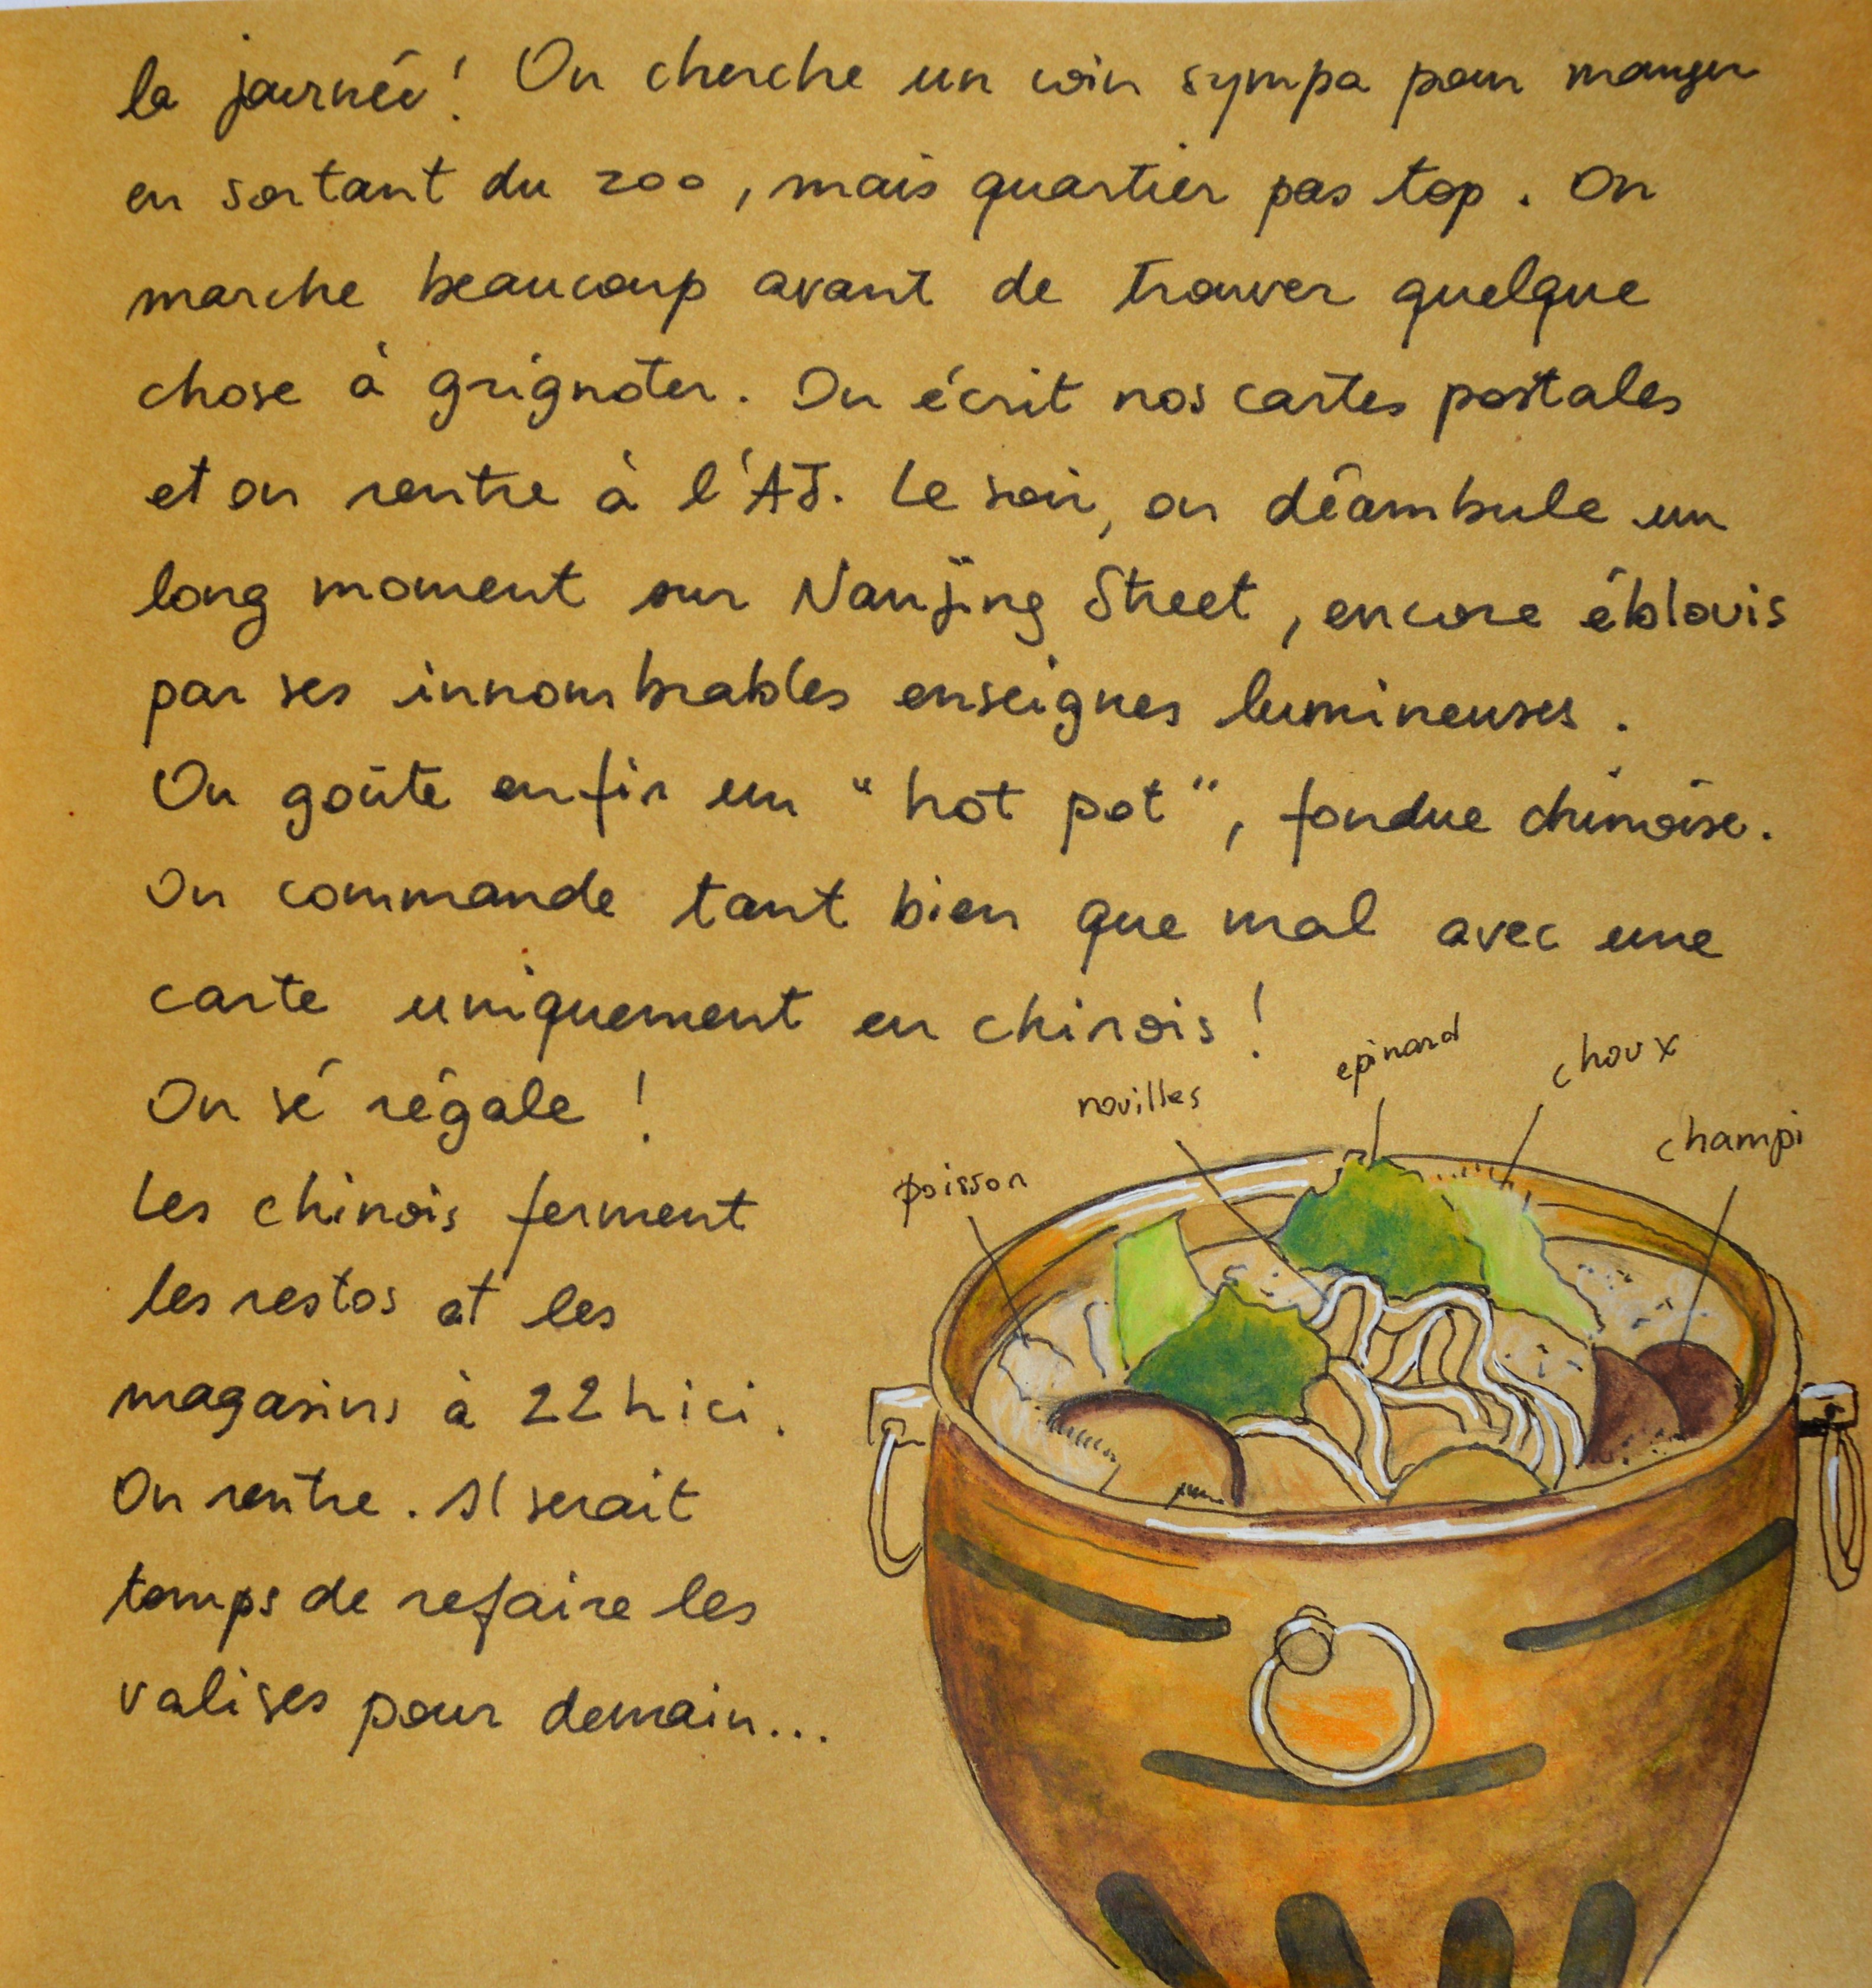 la journée! On cherche un coin sympa pour manger
en sortant du zoo, mais quartier pas top. On
marche beaucoup avant de trouver quelque
chose à grignoter. On écrit nos cartes postales
et on rentre à l'AJ. Le soir, on déambule un
long moment sur Nanjing Street, encore éblouis
par ses innombrables enseignes lumineuses.
On goûte enfin un "hot pot", fondue chinoise.
On commande tant bien que mal avec une
carte uniquement en chinois!
On sé régale!
Les chinois ferment
les restos et les
magasins à 22h ici.
On rentre. Il serait
temps de refaire les
valises pour demain...
poisson
nouilles
epinard
choux
champi